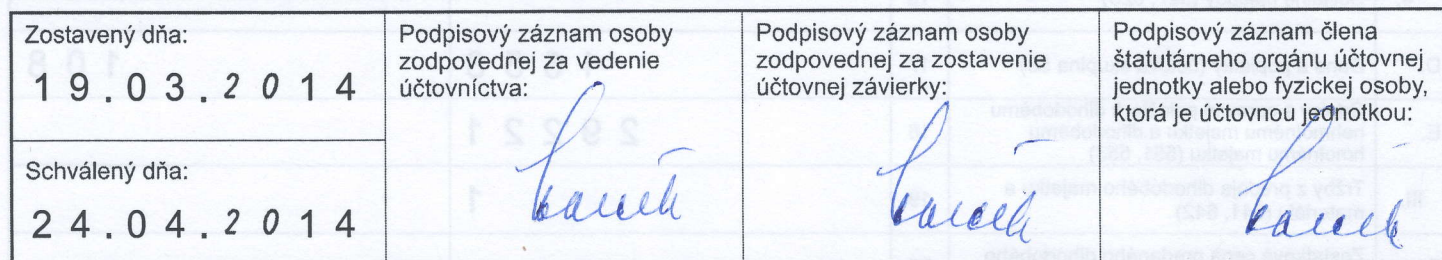 Zostavený dňa:
19.03.2014
Schválený dňa:
24.04.2014
Podpisový záznam osoby
zodpovednej za vedenie
účtovníctva:
Podpisový záznam osoby
zodpovednej za zostavenie
účtovnej závierky:
Podpisový záznam člena
štatutárneho orgánu účtovnej
jednotky alebo fyzickej osoby,
ktorá je účtovnou jednotkou: